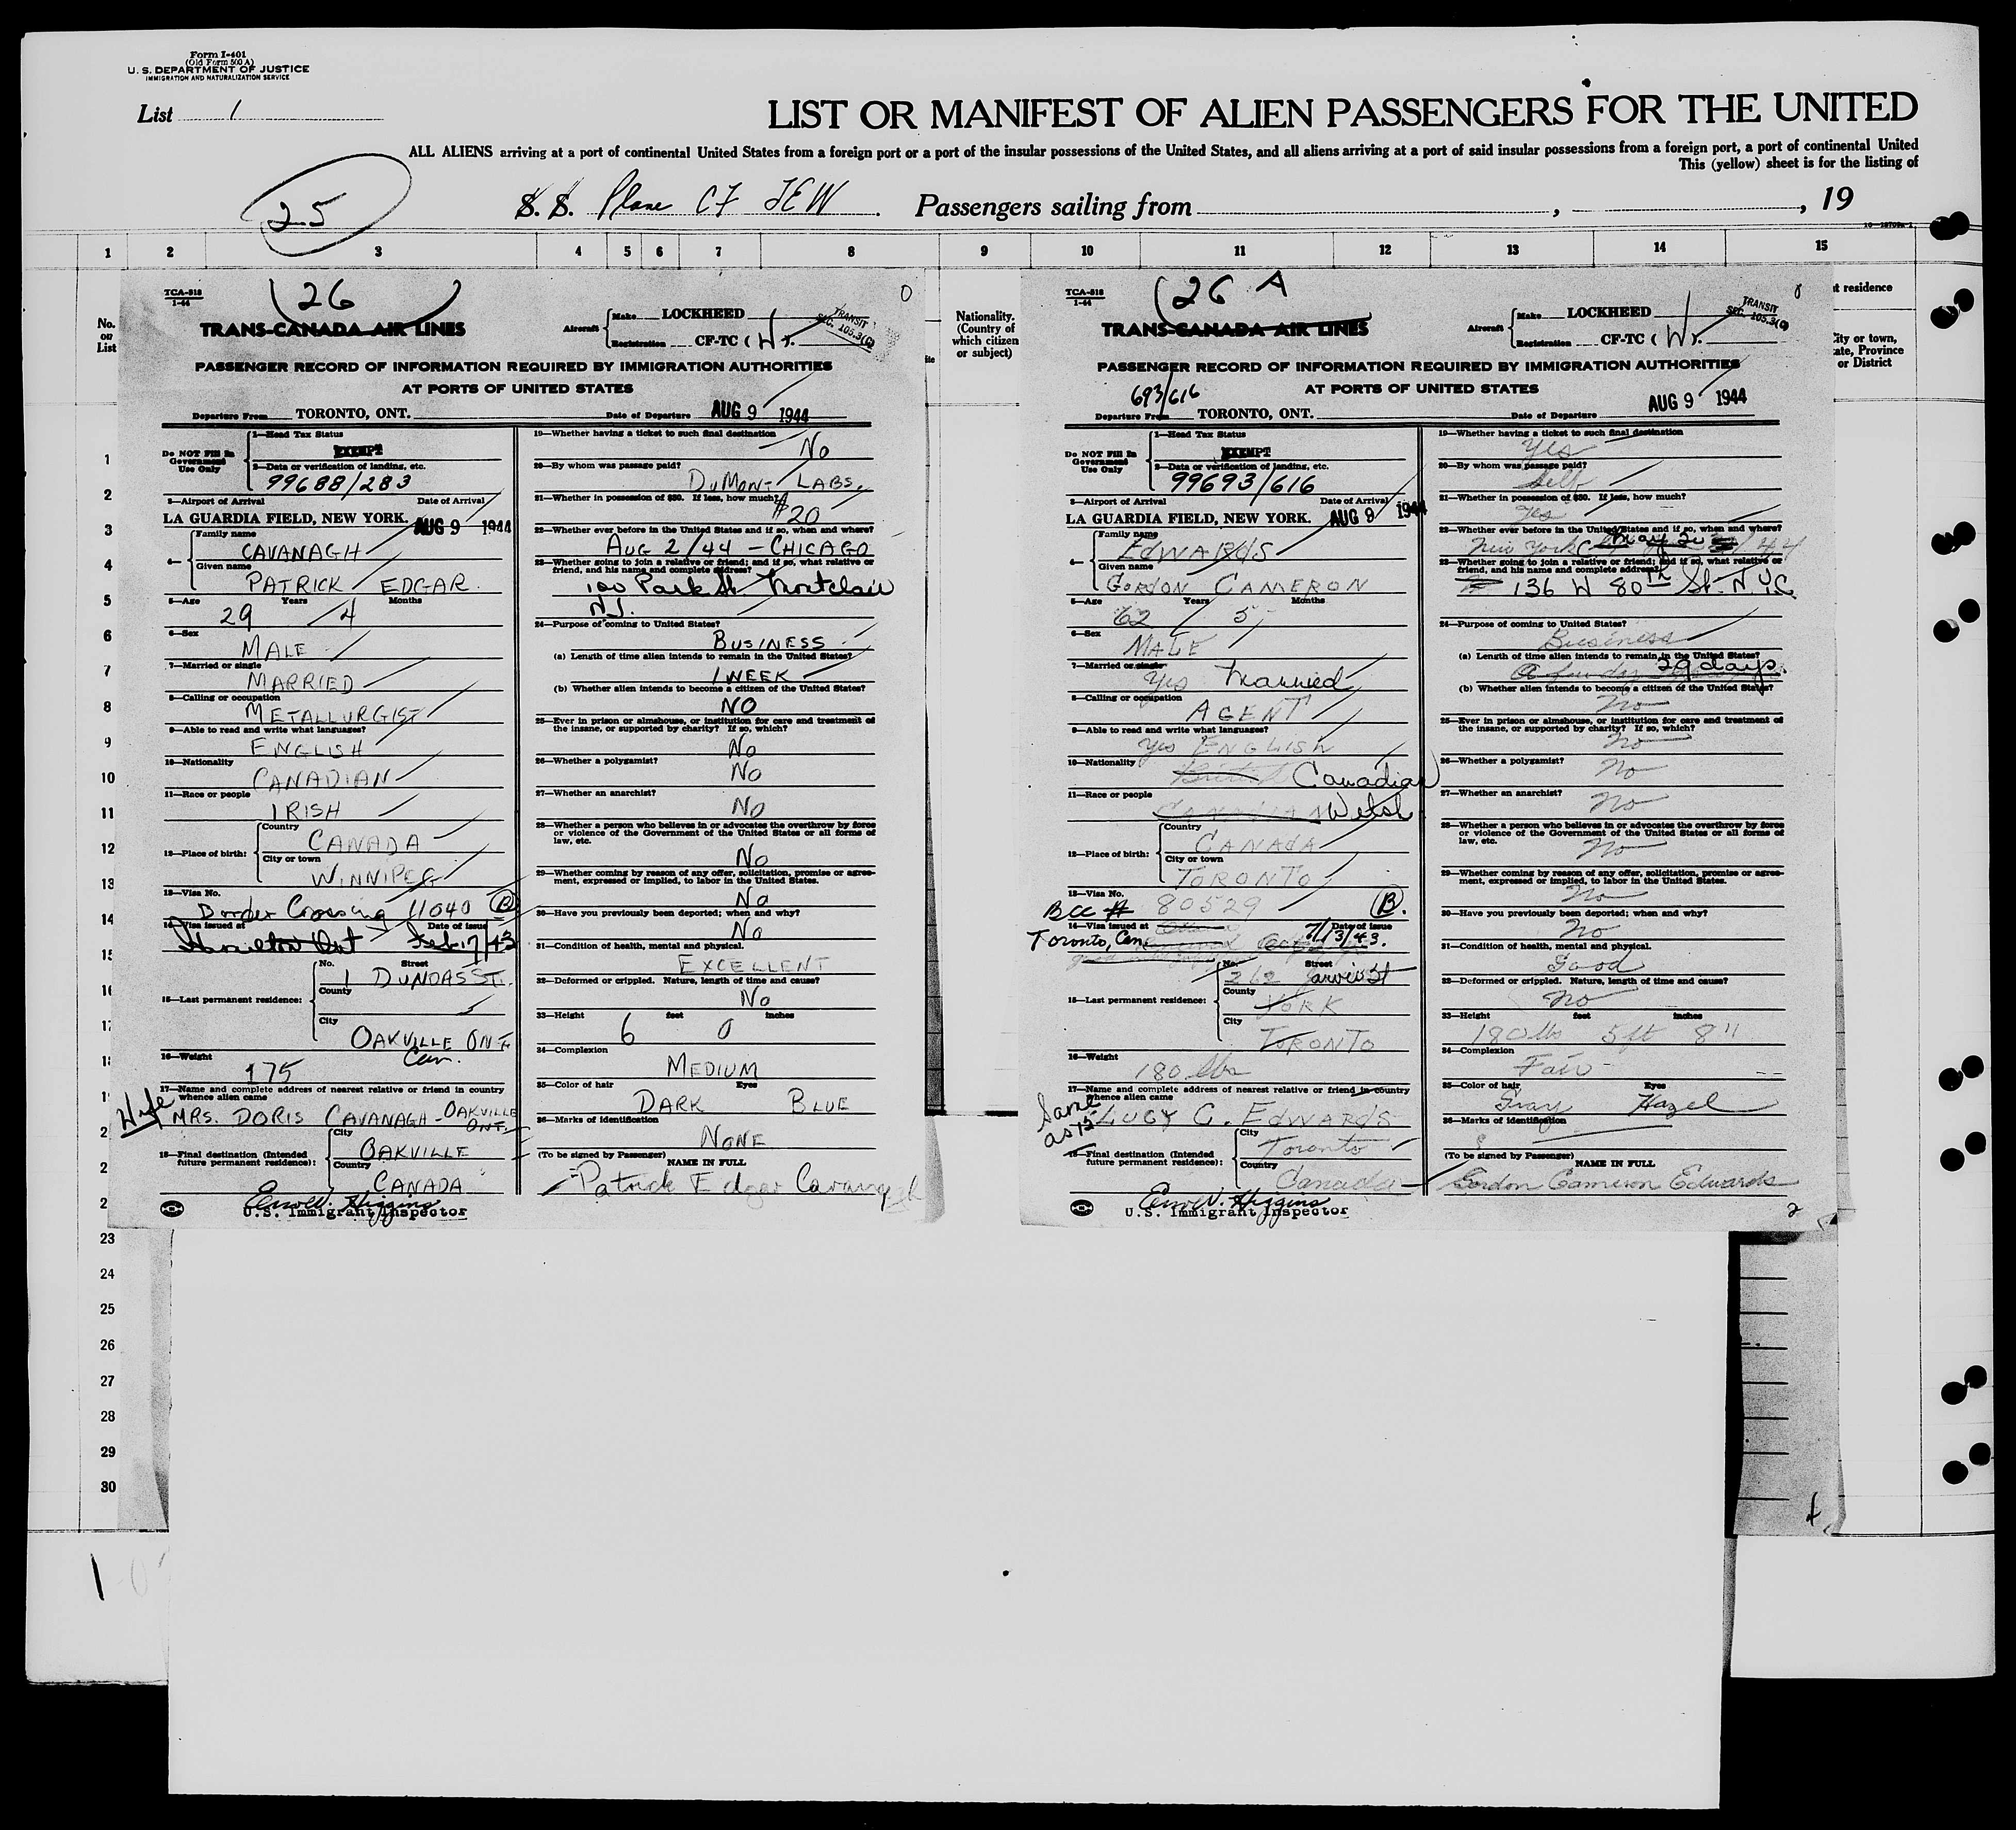 Form I-401
(Old Form 500 A)
U. S. DEPARTMENT OF JUSTICE
IMMIGRATION AND NATURALIZATION SERVICE
List 1
LIST OR MANIFEST OF ALIEN PASSENGERS FOR THE UNITED
ALL ALIENS arriving at a port of continental United States from a foreign port or a port of the insular possessions of the United States, and all aliens arriving at a port of said insular possessions from a foreign port, a port of continental United
This (yellow) sheet is for the listing of
25
S. S. Plane CF TCW . Passengers sailing from , , 19
1 2 3 4 5 6 7 8 9 10 11 12 13 14 15
No. on List
Nationality. (Country of which citizen or subject)
t residence
City or town, ate, Province or District
TCA-518
1-44
26
0
TRANS-CANADA AIR LINES
Aircraft
Make LOCKHEED
Registration CF-TC W
TRANSIT
SEC. 105.3(C)
PASSENGER RECORD OF INFORMATION REQUIRED BY IMMIGRATION AUTHORITIES
AT PORTS OF UNITED STATES
Departure From TORONTO, ONT. Date of Departure AUG 9 1944
Do NOT Fill In Government Use Only
1—Head Tax Status
EXEMPT
2—Data or verification of landing, etc.
99688/283
3—Airport of Arrival Date of Arrival
LA GUARDIA FIELD, NEW YORK. AUG 9 1944
4— Family name
CAVANAGH
Given name
PATRICK EDGAR.
5—Age Years Months
29 4
6—Sex
MALE
7—Married or single
MARRIED
8—Calling or occupation
METALLURGIST
9—Able to read and write what languages?
ENGLISH
10—Nationality
CANADIAN
11—Race or people
IRISH
12—Place of birth:
Country
CANADA
City or town
WINNIPEG
13—Visa No.
Border Crossing 11040 B
14—Visa issued at Date of issue
Hamilton Ont Feb 17/43
15—Last permanent residence:
No. Street
1 DUNDAS ST.
County
City
OAKVILLE ONT.
Can.
16—Weight
175
17—Name and complete address of nearest relative or friend in country whence alien came
Wife
MRS. DORIS CAVANAGH - OAKVILLE ONT.
18—Final destination (Intended future permanent residence):
City
OAKVILLE
Country
CANADA
U.S. Immigrant Inspector
19—Whether having a ticket to such final destination
No
20—By whom was passage paid?
DuMont LABS.
21—Whether in possession of $50. If less, how much?
$20
22—Whether ever before in the United States and if so, when and where?
AUG 2/44 - CHICAGO
23—Whether going to join a relative or friend; and if so, what relative or friend, and his name and complete address?
100 Park St Montclair
N.J.
24—Purpose of coming to United States?
BUSINESS
(a) Length of time alien intends to remain in the United States?
1 WEEK
(b) Whether alien intends to become a citizen of the United States?
NO
25—Ever in prison or almshouse, or institution for care and treatment of the insane, or supported by charity? If so, which?
No
26—Whether a polygamist?
No
27—Whether an anarchist?
No
28—Whether a person who believes in or advocates the overthrow by force or violence of the Government of the United States or all forms of law, etc.
No
29—Whether coming by reason of any offer, solicitation, promise or agreement, expressed or implied, to labor in the United States.
No
30—Have you previously been deported; when and why?
No
31—Condition of health, mental and physical.
EXCELLENT
32—Deformed or crippled. Nature, length of time and cause?
No
33—Height feet inches
6 0
34—Complexion
MEDIUM
35—Color of hair Eyes
DARK BLUE
36—Marks of identification
NONE
(To be signed by Passenger)
NAME IN FULL
Patrick Edgar Cavanagh
TCA-518
1-44
26 A
TRANS-CANADA AIR LINES
Aircraft
Make LOCKHEED
Registration CF-TC W
TRANSIT
SEC. 105.3(C)
PASSENGER RECORD OF INFORMATION REQUIRED BY IMMIGRATION AUTHORITIES
AT PORTS OF UNITED STATES
693/616
Departure From TORONTO, ONT. Date of Departure AUG 9 1944
Do NOT Fill In Government Use Only
1—Head Tax Status
EXEMPT
2—Data or verification of landing, etc.
99693/616
3—Airport of Arrival Date of Arrival
LA GUARDIA FIELD, NEW YORK. AUG 9 1944
4— Family name
EDWARDS
Given name
GORDON CAMERON
5—Age Years Months
62 5
6—Sex
MALE
7—Married or single
Yes Married
8—Calling or occupation
AGENT
9—Able to read and write what languages?
Yes ENGLISH
10—Nationality
Canadian
11—Race or people
Welsh
12—Place of birth:
Country
CANADA
City or town
TORONTO
13—Visa No.
BCC # 80529 B.
14—Visa issued at Date of issue
Toronto, Can. 7/13/43.
15—Last permanent residence:
No. Street
262 Jarvis St
County
YORK
City
TORONTO
16—Weight
180 lbs
17—Name and complete address of nearest relative or friend in country whence alien came
Same as 15
LUCY C. EDWARDS
18—Final destination (Intended future permanent residence):
City
Toronto
Country
Canada
U.S. Immigrant Inspector
19—Whether having a ticket to such final destination
Yes
20—By whom was passage paid?
Self
21—Whether in possession of $50. If less, how much?
Yes
22—Whether ever before in the United States and if so, when and where?
New York May 20 44
23—Whether going to join a relative or friend; and if so, what relative or friend, and his name and complete address?
136 W 80th St. N.Y.C.
24—Purpose of coming to United States?
Business
(a) Length of time alien intends to remain in the United States?
29 days.
(b) Whether alien intends to become a citizen of the United States?
No
25—Ever in prison or almshouse, or institution for care and treatment of the insane, or supported by charity? If so, which?
No
26—Whether a polygamist?
No
27—Whether an anarchist?
No
28—Whether a person who believes in or advocates the overthrow by force or violence of the Government of the United States or all forms of law, etc.
No
29—Whether coming by reason of any offer, solicitation, promise or agreement, expressed or implied, to labor in the United States.
No
30—Have you previously been deported; when and why?
No
31—Condition of health, mental and physical.
Good
32—Deformed or crippled. Nature, length of time and cause?
No
33—Height feet inches
180 lbs 5 ft 8"
34—Complexion
Fair
35—Color of hair Eyes
Gray Hazel
36—Marks of identification
(To be signed by Passenger)
NAME IN FULL
Gordon Cameron Edwards
2
1
2
3
4
5
6
7
8
9
10
11
12
13
14
15
16
17
18
23
24
25
26
27
28
29
30
1